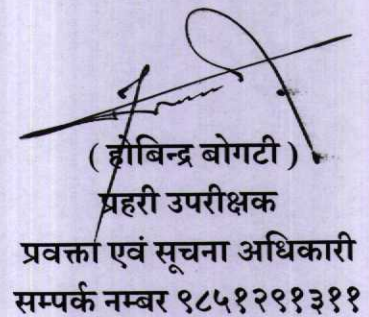 ( होबिन्द्र बोगटी )
प्रहरी उपरीक्षक
प्रवक्ता एवं सूचना अधिकारी
सम्पर्क नम्बर ९८५१२९१३११